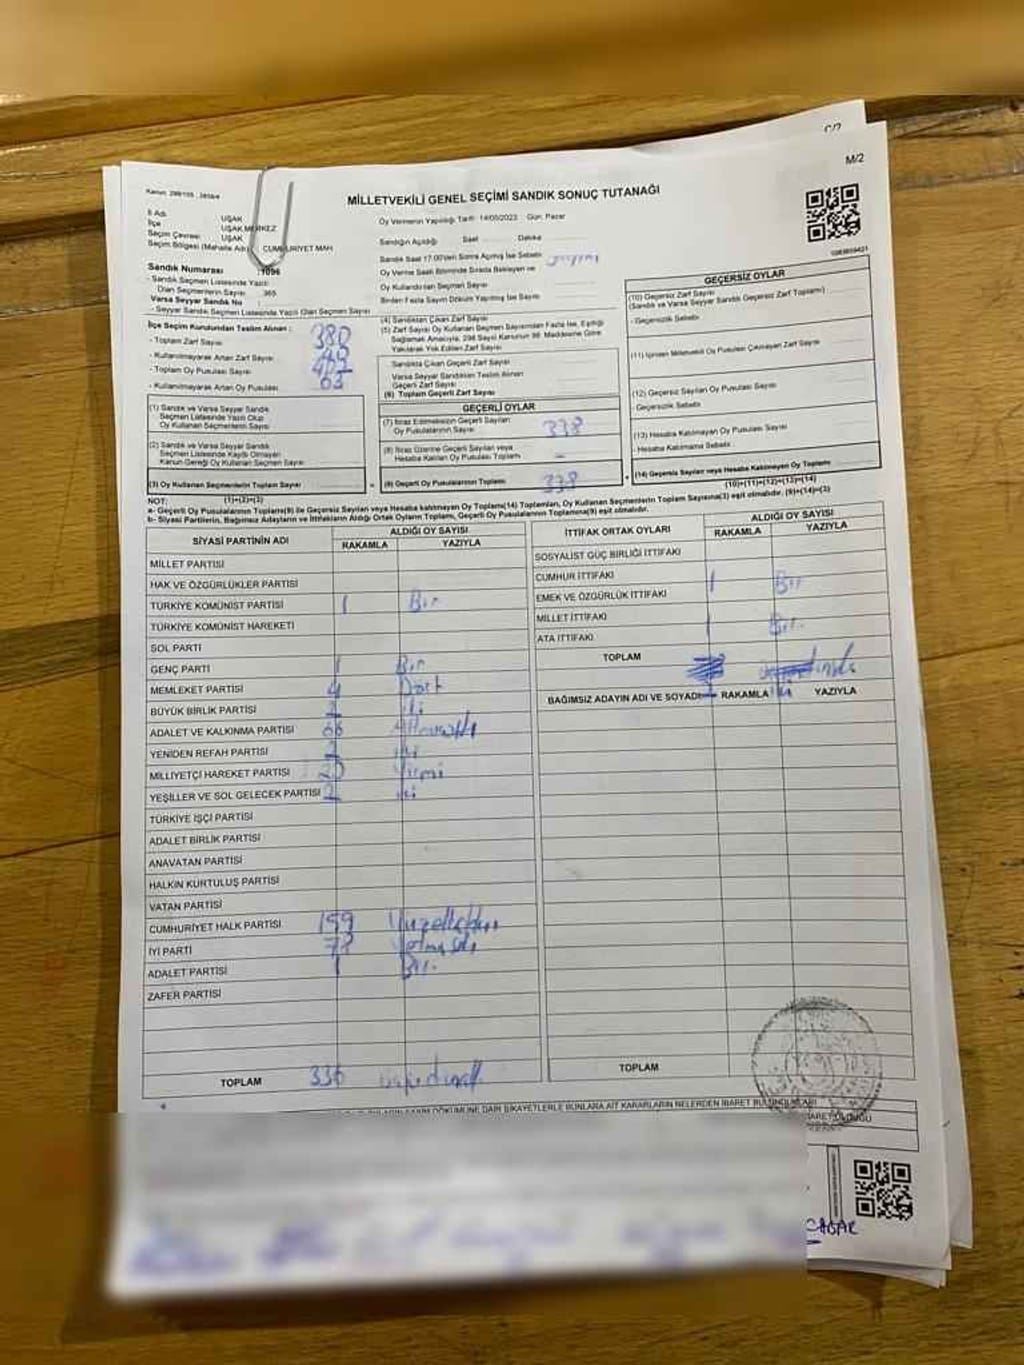 C/2
M/2
MİLLETVEKİLİ GENEL SEÇİMİ SANDIK SONUÇ TUTANAĞI
İl Adı UŞAK
İlçe UŞAK MERKEZ
Seçim Çevresi UŞAK
Seçim Bölgesi (Mahalle Adı) CUMHURİYET MAH.
Sandık Numarası :1096
- Sandık Seçmen Listesinde Yazılı
Olan Seçmenlerin Sayısı : 365
Varsa Seyyar Sandık No :
- Seyyar Sandık Seçmen Listesinde Yazılı Olan Seçmen Sayısı
Oy Vermenin Yapıldığı Tarih: 14/05/2023 Gün: Pazar
Sandığın Açıldığı Saat Dakika
Sandık Saat 17.00'den Sonra Açılmış İse Sebebi
Oy Verme Saati Bitiminde Sırada Bekleyen ve
Oy Kullandırılan Seçmen Sayısı
Birden Fazla Sayım Döküm Yapılmış İse Sayısı
İlçe Seçim Kurulundan Teslim Alınan :
- Toplam Zarf Sayısı 380
- Kullanılmayarak Artan Zarf Sayısı
- Toplam Oy Pusulası Sayısı
- Kullanılmayarak Artan Oy Pusulası 63
(1) Sandık ve Varsa Seyyar Sandık
Seçmen Listesinde Yazılı Olup
Oy Kullanan Seçmenlerin Sayısı
(2) Sandık ve Varsa Seyyar Sandık
Seçmen Listesinde Kayıtlı Olmayan
Kanun Gereği Oy Kullanan Seçmen Sayısı
(3) Oy Kullanan Seçmenlerin Toplam Sayısı
(1)+(2)=(3)
(4) Sandıktan Çıkan Zarf Sayısı
(5) Zarf Sayısı Oy Kullanan Seçmen Sayısından Fazla İse, Eşitliği
Sağlamak Amacıyla, 298 Sayılı Kanunun 98. Maddesine Göre
Yakılarak Yok Edilen Zarf Sayısı
Sandıkta Çıkan Geçerli Zarf Sayısı
Varsa Seyyar Sandıktan Teslim Alınan
Geçerli Zarf Sayısı
(6) Toplam Geçerli Zarf Sayısı
GEÇERLİ OYLAR
(7) İtiraz Edilmeksizin Geçerli Sayılan
Oy Pusulalarının Sayısı 338
(8) İtiraz Üzerine Geçerli Sayılan veya
Hesaba Katılan Oy Pusulaları Toplamı -
(9) Geçerli Oy Pusulalarının Toplamı 338
GEÇERSİZ OYLAR
(10) Geçersiz Zarf Sayısı
(Sandık ve Varsa Seyyar Sandık Geçersiz Zarf Toplamı)
- Geçersizlik Sebebi
(11) İçinden Milletvekili Oy Pusulası Çıkmayan Zarf Sayısı
(12) Geçersiz Sayılan Oy Pusulası Sayısı
- Geçersizlik Sebebi
(13) Hesaba Katılmayan Oy Pusulası Sayısı
- Hesaba Katılmama Sebebi
(14) Geçersiz Sayılan veya Hesaba Katılmayan Oy Toplamı
(10)+(11)+(12)+(13)=(14)
NOT:
a- Geçerli Oy Pusulalarının Toplamı(9) ile Geçersiz Sayılan veya Hesaba katılmayan Oy Toplamı(14) Toplamları, Oy Kullanan Seçmenlerin Toplam Sayısına(3) eşit olmalıdır. (9)+(14)=(3)
b- Siyasi Partilerin, Bağımsız Adayların ve İttifakların Aldığı Ortak Oyların Toplamı, Geçerli Oy Pusulalarının Toplamına(9) eşit olmalıdır.
SİYASİ PARTİNİN ADI
ALDIĞI OY SAYISI
RAKAMLA YAZIYLA
MİLLET PARTİSİ
HAK VE ÖZGÜRLÜKLER PARTİSİ
TÜRKİYE KOMÜNİST PARTİSİ 1 Bir
TÜRKİYE KOMÜNİST HAREKETİ
SOL PARTİ
GENÇ PARTİ 1 Bir
MEMLEKET PARTİSİ 4 Dört
BÜYÜK BİRLİK PARTİSİ 2 iki
ADALET VE KALKINMA PARTİSİ 66 Altmışaltı
YENİDEN REFAH PARTİSİ 2 iki
MİLLİYETÇİ HAREKET PARTİSİ 20 Yirmi
YEŞİLLER VE SOL GELECEK PARTİSİ 2 iki
TÜRKİYE İŞÇİ PARTİSİ
ADALET BİRLİK PARTİSİ
ANAVATAN PARTİSİ
HALKIN KURTULUŞ PARTİSİ
VATAN PARTİSİ
CUMHURİYET HALK PARTİSİ 159
İYİ PARTİ 78
ADALET PARTİSİ 1 Bir
ZAFER PARTİSİ
TOPLAM 336
İTTİFAK ORTAK OYLARI
ALDIĞI OY SAYISI
RAKAMLA YAZIYLA
SOSYALİST GÜÇ BİRLİĞİ İTTİFAKI
CUMHUR İTTİFAKI 1 Bir
EMEK VE ÖZGÜRLÜK İTTİFAKI
MİLLET İTTİFAKI 1 Bir
ATA İTTİFAKI
TOPLAM
BAĞIMSIZ ADAYIN ADI VE SOYADI RAKAMLA YAZIYLA
TOPLAM